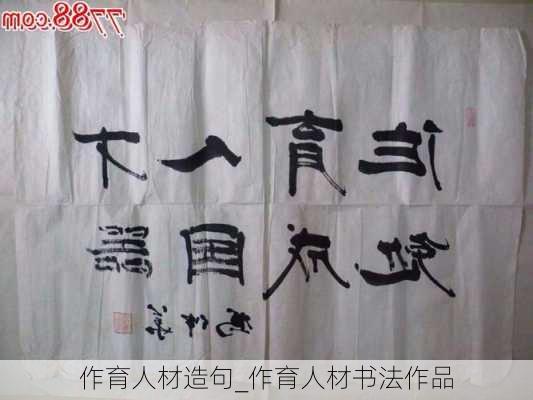 7788.com
作育人才
造成國器
作育人材造句_作育人材书法作品